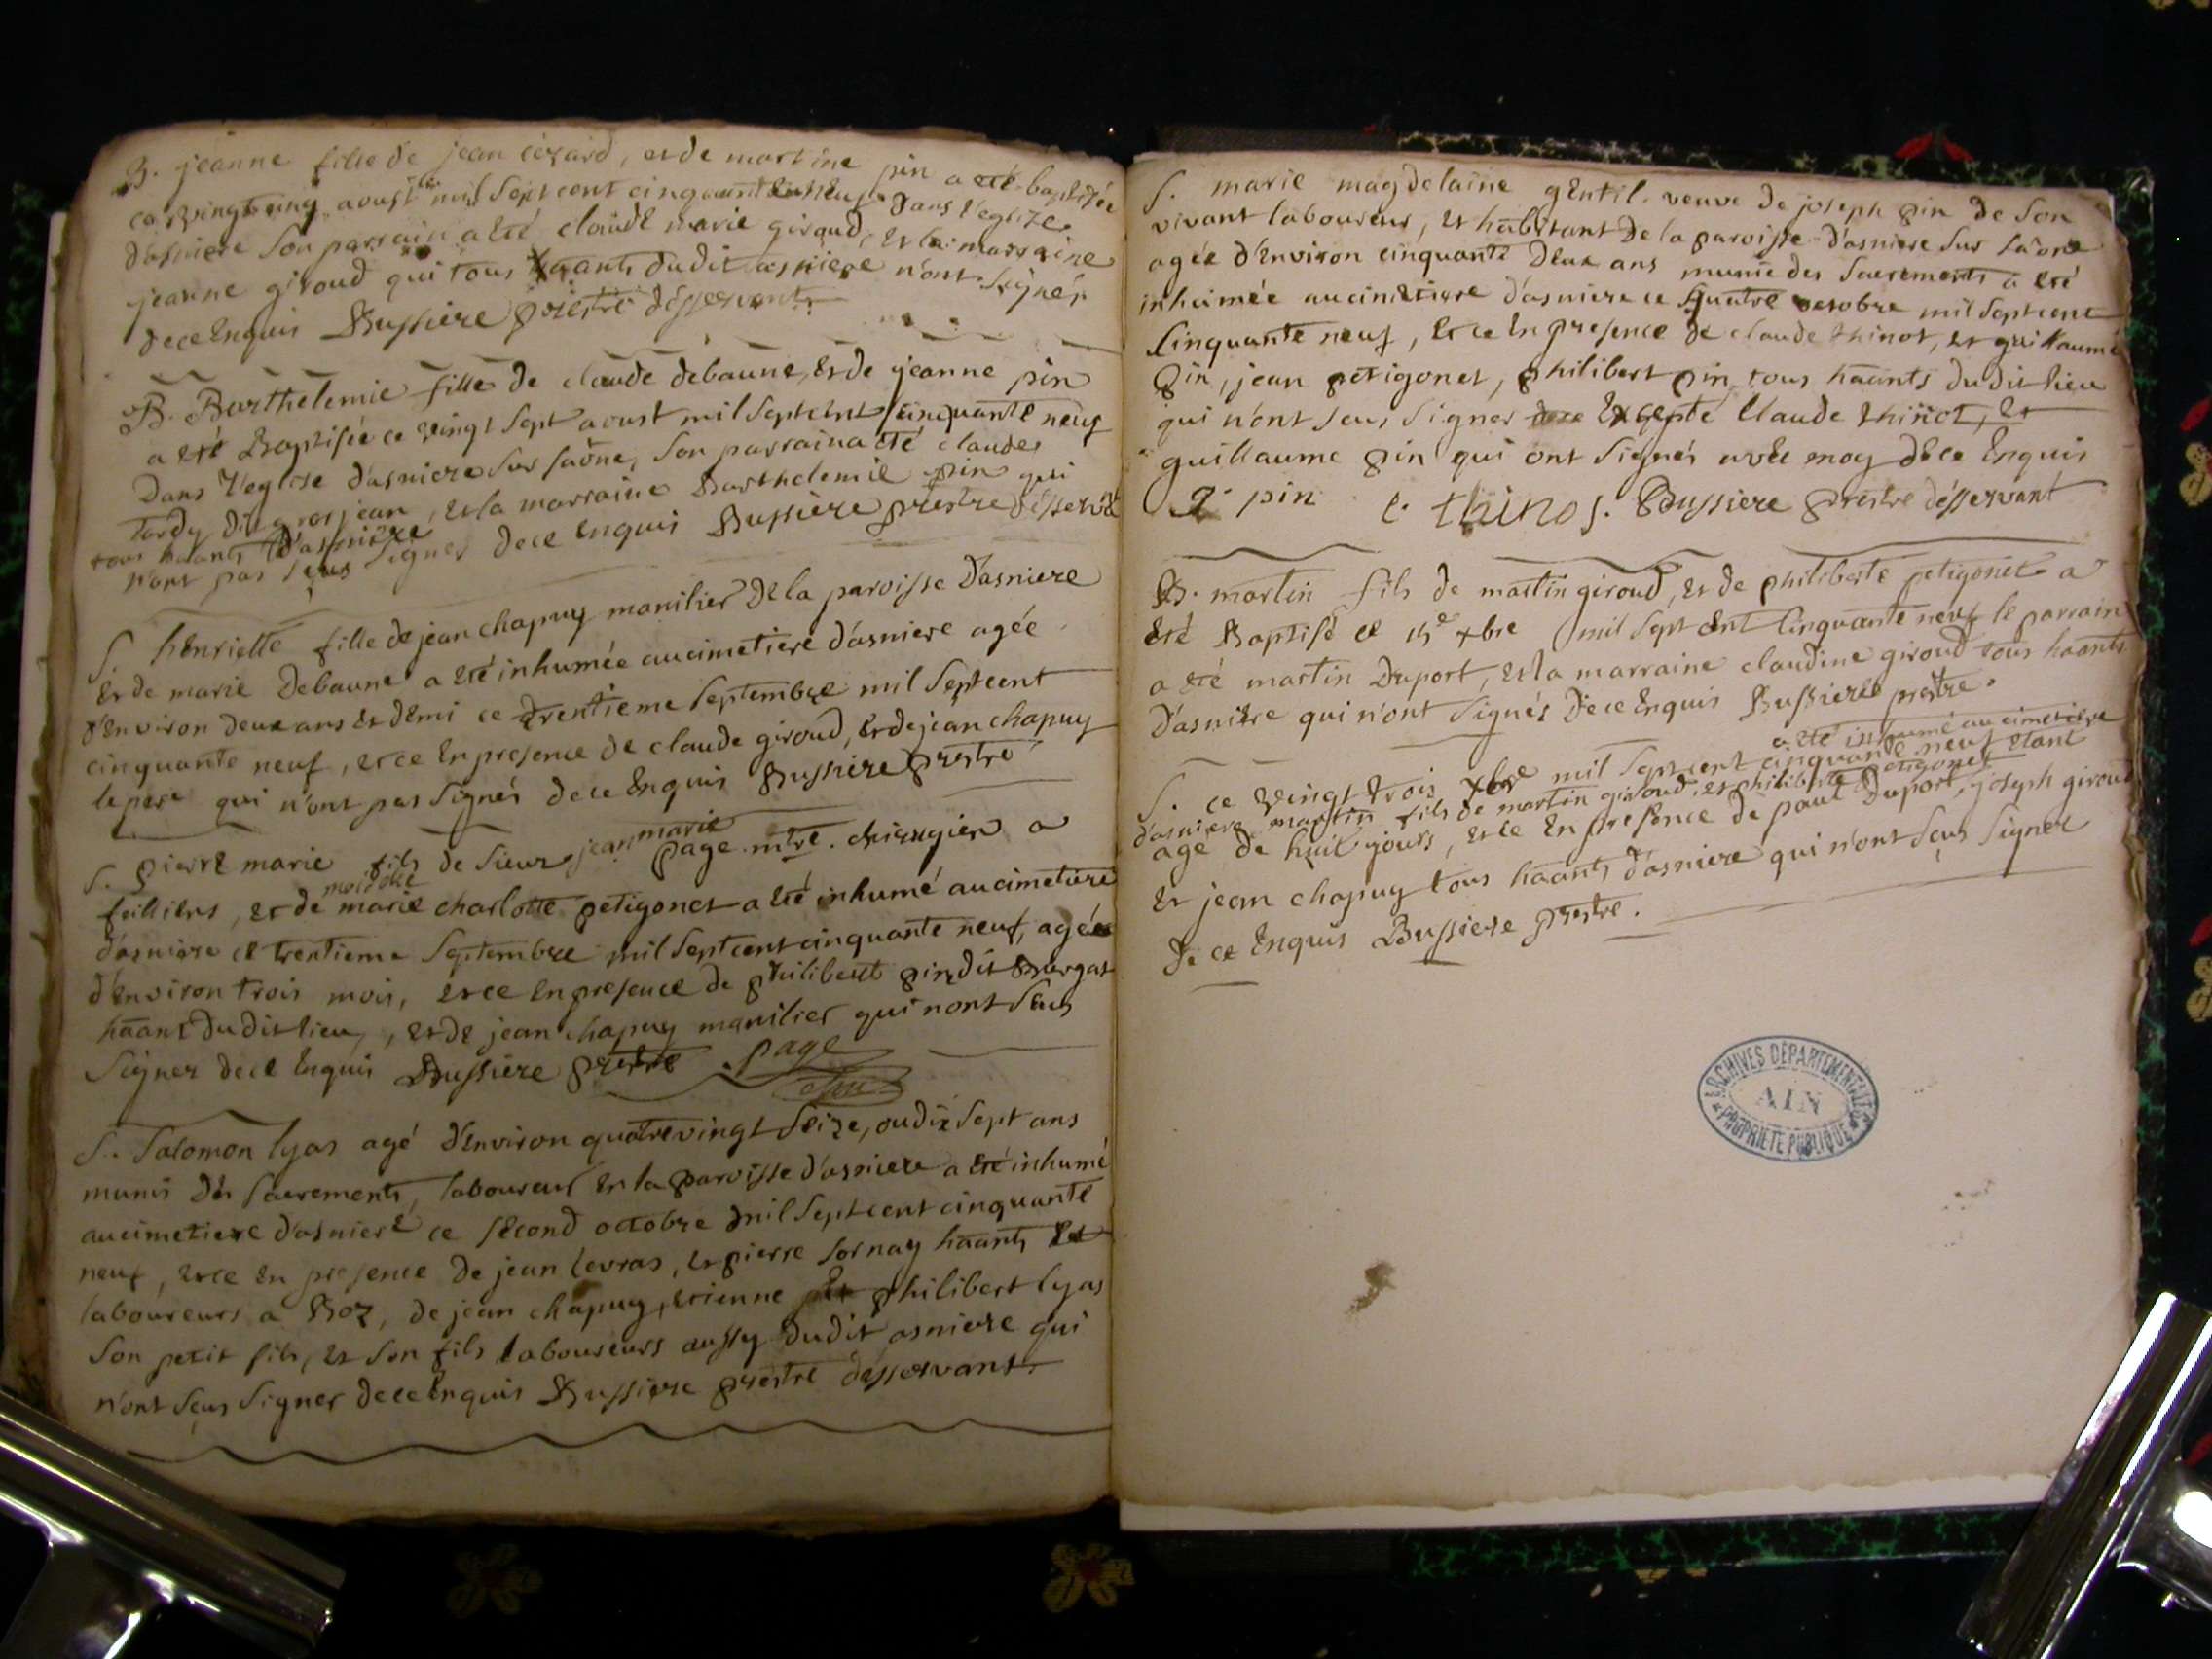 B. jeanne fille de jean cézard, et de martine pin a eté baptisée
ce vingt cinq aoust mil sept cent cinquante neuf dans l'eglize
d'asniere son parrain a eté claude marie giroud, et la marraine
jeanne giroud qui tous haants dudit asniere n'ont signés
de ce enquis Bussiere prestre desservant
B. Barthelemie fille de claude debaune, et de jeanne pin
a eté Baptisée ce vingt sept aoust mil sept cent cinquante neuf
Dans l'eglise d'asniere sur saône, son parrain a eté claude
tardy dit gros jean, et la marraine Barthelemie pin qui
tous haants d'asniere
n'ont pas sçus signer de ce enquis Bussiere prestre desservant
S. henriette fille de jean chapuy manilier de la paroisse d'asniere
et de marie debaune a eté inhumée au cimetiere d'asniere agée
d'environ deux ans et demi ce trentieme septembre mil sept cent
cinquante neuf, et ce en presence de claude giroud, et de jean chapuy
le pere qui n'ont pas signés de ce enquis Bussiere prestre
S. pierre marie fils de sieur jean marie page mtre. chirugien a
feillens, et de marie charlotte petigonet a eté inhumé au cimetiere
d'asniere ce trentieme septembre mil sept cent cinquante neuf, agée
d'environ trois mois, et ce en presence de philibert pin dit Burgat
haant dudit lieu, et de jean chapuy manilier qui nont sçus
signer de ce enquis Bussiere prestre page
S. Salomon lyas agé d'environ quatrevingt seize, ou dix sept ans
munis des sacrements, laboureur en la paroisse d'asniere a eté inhumé
au cimetiere d'asniere ce second octobre mil sept cent cinquante
neuf, et ce en presence de jean levras, et pierre sornay haants
laboureurs a Boz, de jean chapuy, etienne et philibert lyas
son petit fils, et son fils laboureurs aussy dudit asniere qui
n'ont sçus signer de ce enquis Bussiere prestre desservant
S. marie magdelaine gentil veuve de joseph pin de son
vivant laboureur, et habitant de la paroisse d'asniere sur saône
agée d'environ cinquante deux ans munie des sacrements a eté
inhumée au cimetiere d'asniere ce quatre octobre mil sept cent
cinquante neuf, et ce en presence de claude thinot, et guillaume
pin, jean petigonet, philibert pin tous haants dudit lieu
qui n'ont sçus signer de ce excepté claude thinot, et
guillaume pin qui ont signés avec moy de ce enquis
g. pin c. thinos. Bussiere prestre desservant
B. martin fils de martin giroud, et de philiberte petigonet a
eté Baptisé ce 15e xbre mil sept cent cinquante neuf le parrain
a eté martin Duport, et la marraine claudine giroud tous haants
d'asniere qui n'ont signés de ce enquis Bussiere prestre.
a eté inhumé au cimetiere
S. ce vingt trois xbre mil sept cent cinquante neuf etant
d'asniere martin fils de martin giroud, et philiberte petigonet
agé de huit jours, et ce en presence de paul Duport, joseph giroud
et jean chapuy tous haants d'asniere qui n'ont sçus signer
de ce enquis Bussiere prestre.
ARCHIVES DÉPARTEMENTALES
AIN
PROPRIÉTÉ PUBLIQUE